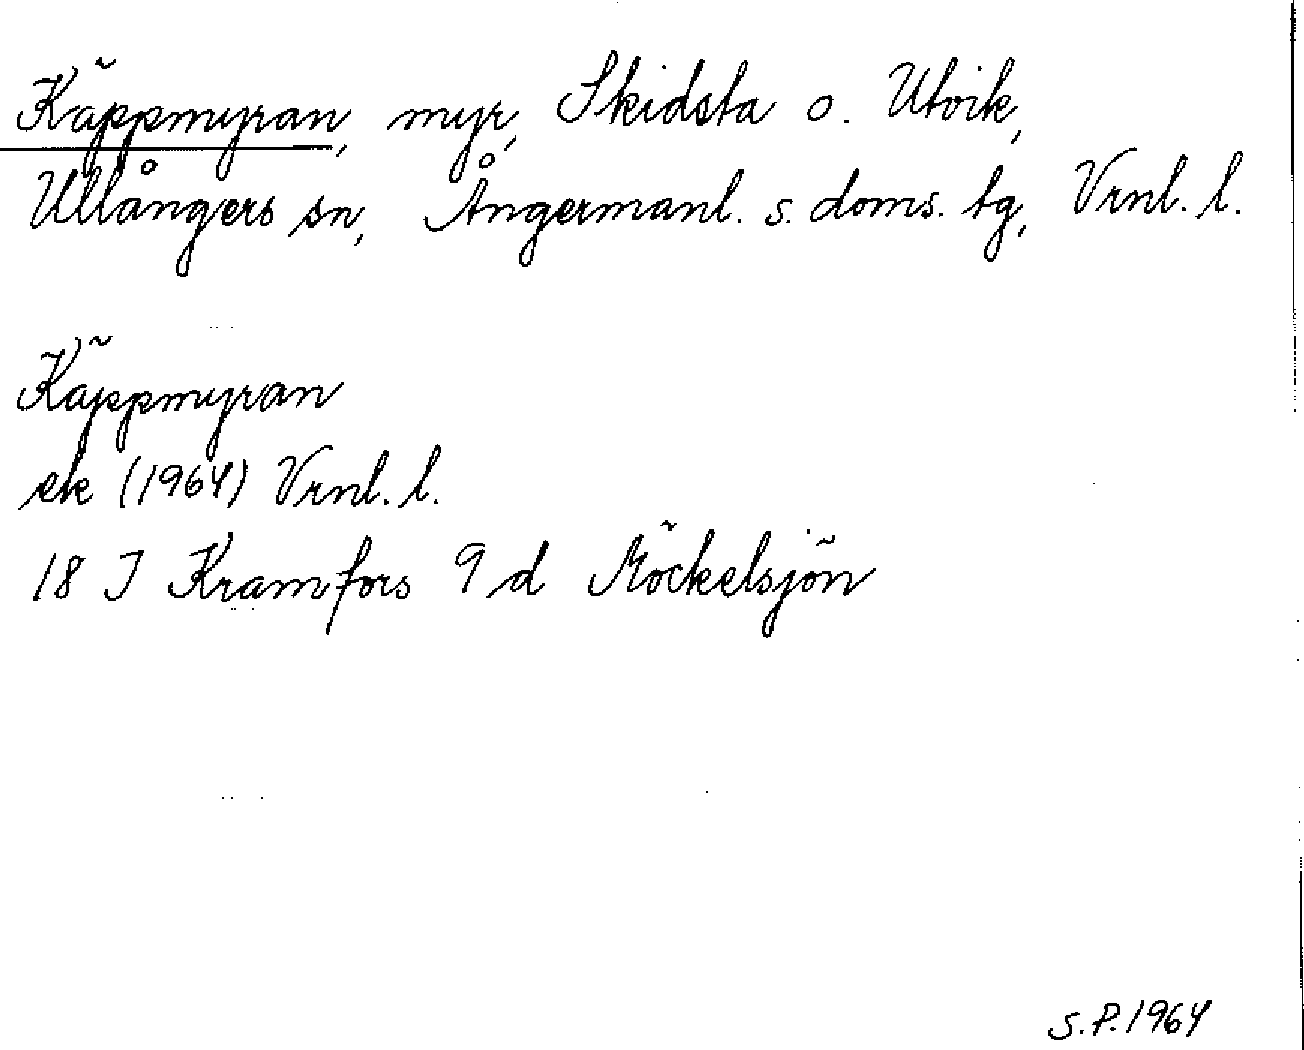 Käppmyran, myr, Skidsta o. Utvik,
Ullångers sn, Ångermanl. s. doms. tg, Vrnl. l.
Käppmyran
ek (1964) Vrnl. l.
18 J Kramfors 9 d Möckelsjön
S.P. 1964